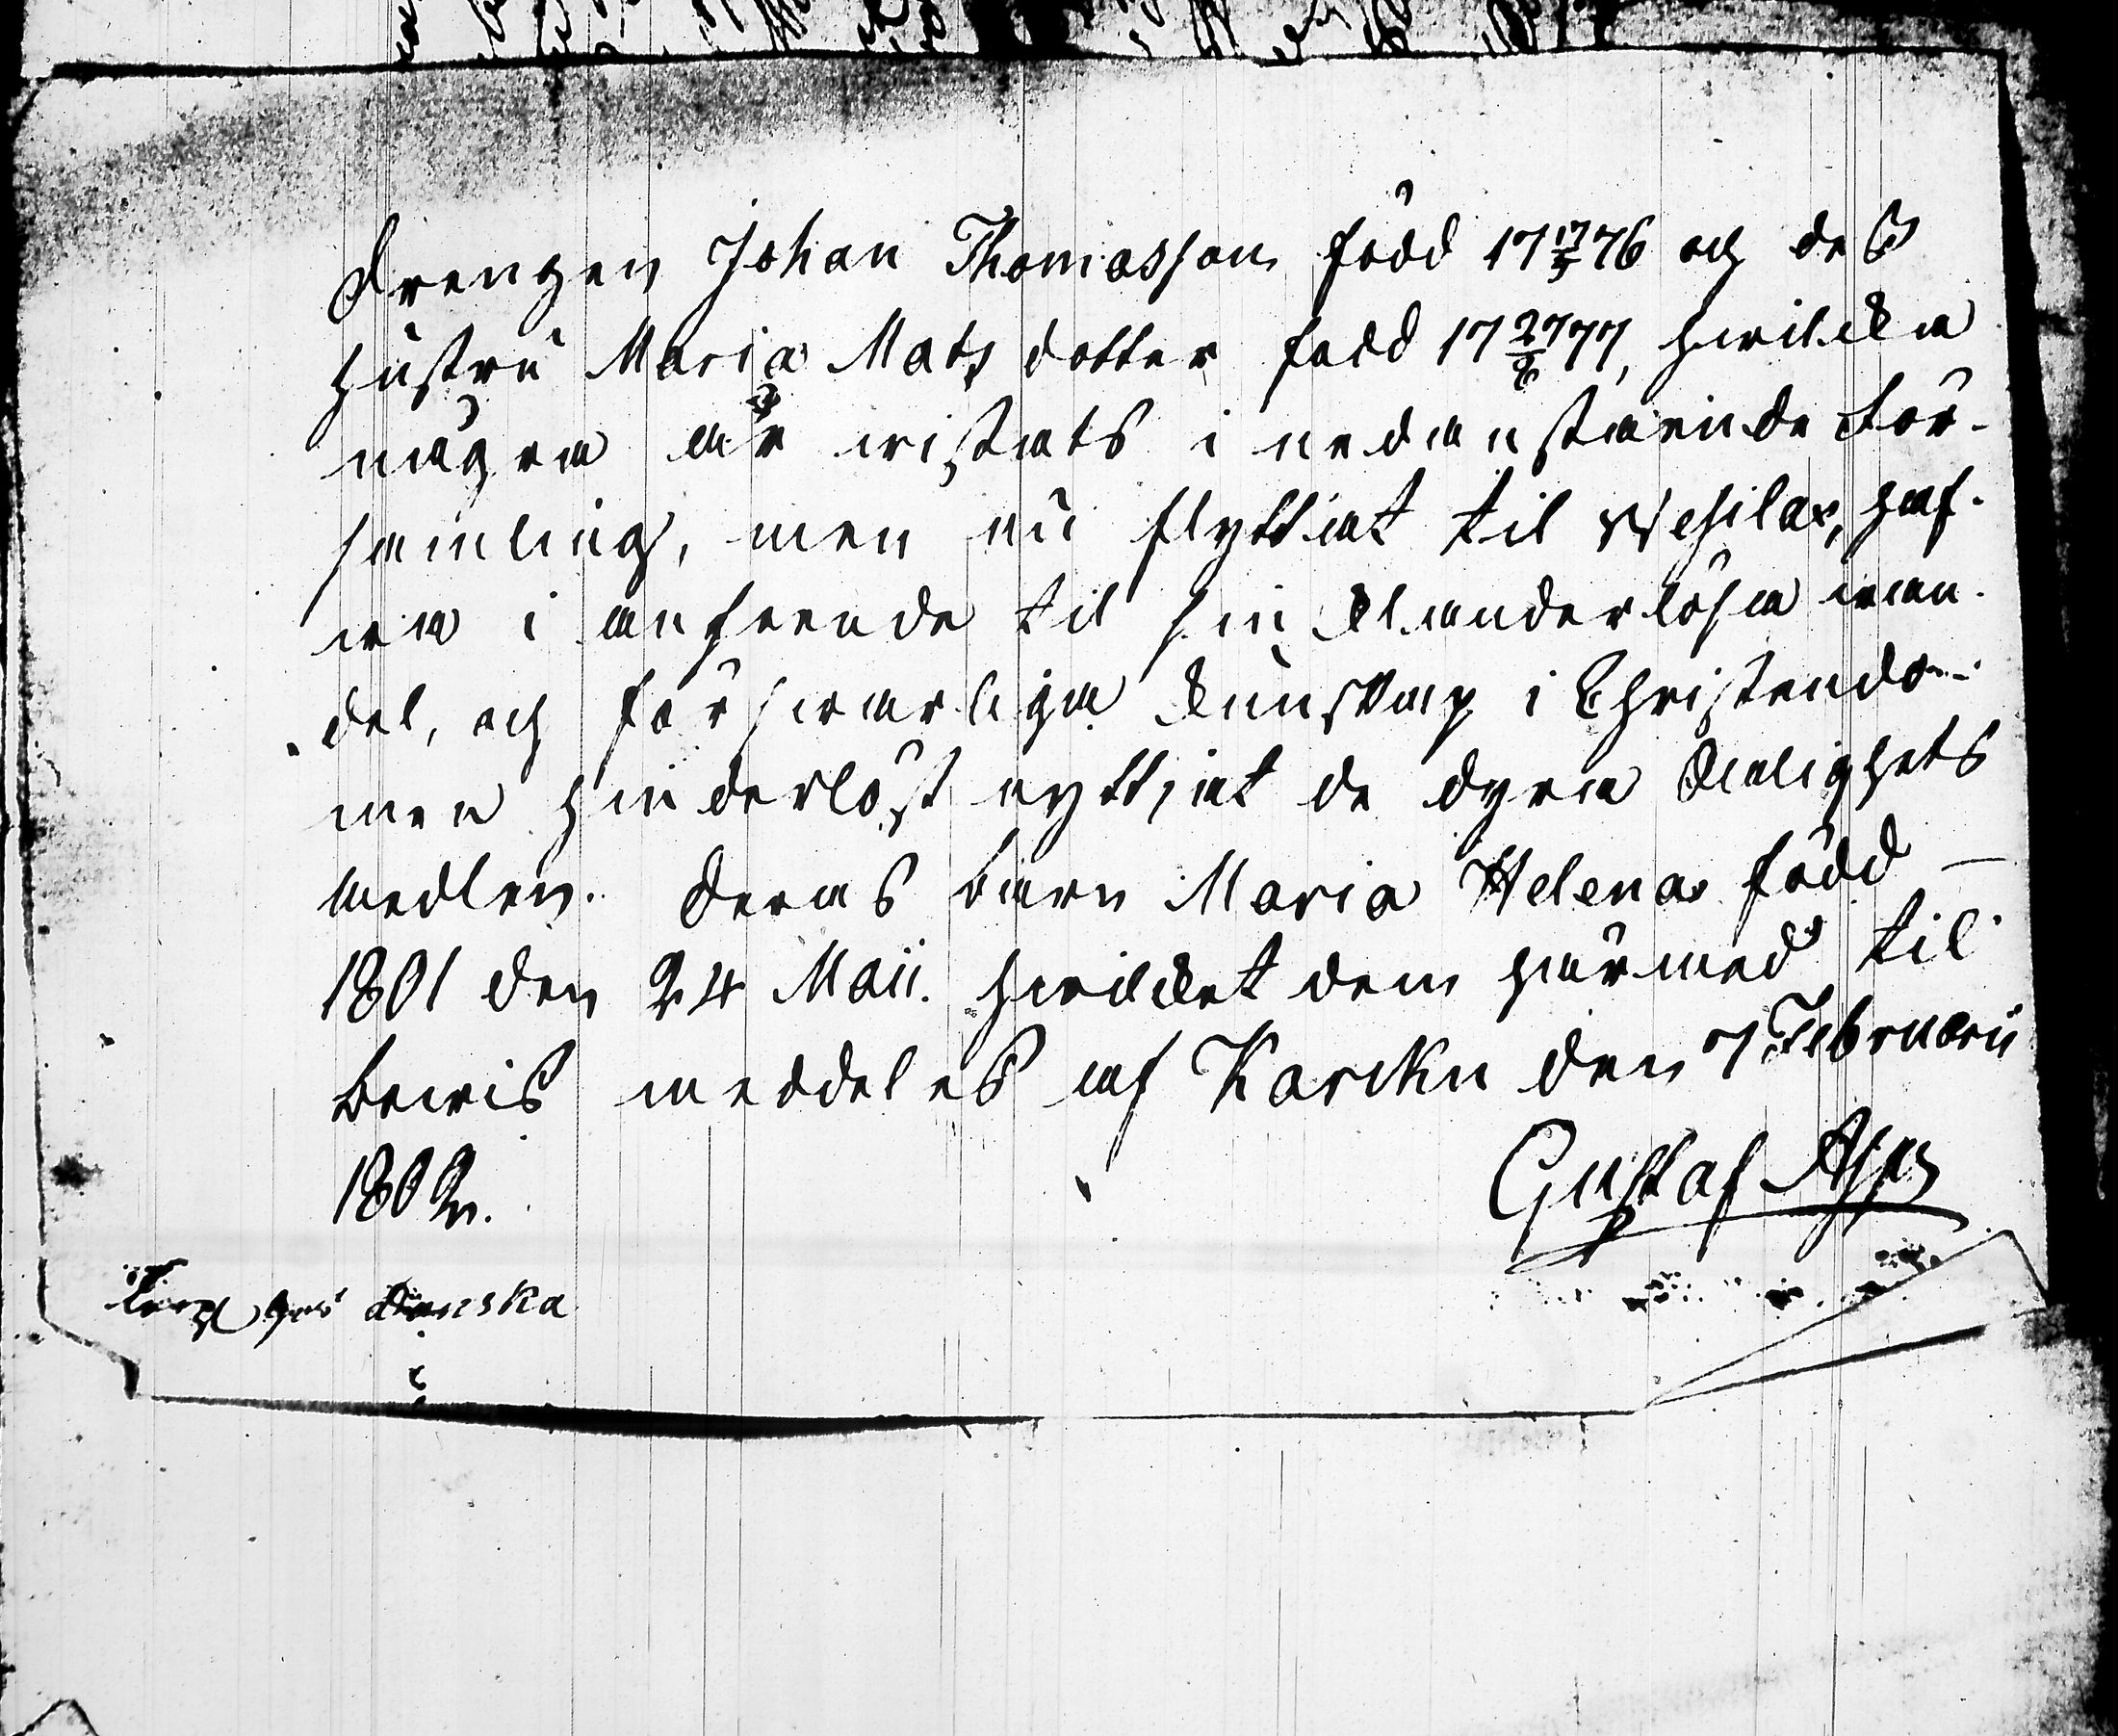 Drengen Johan Thomasson född 17 17/5 76 och deß
hustru Maria Mats dotter född 17 2/8 77, hwilcka
några år wistats i nedanstående för-
samling, men nu flyttiat til Wesilax, haf-
wa i anseende til sin klanderlösa wan-
del, och förswarliga kunskap i Christendo-
men hinderlöst nyttjat de dyra Salighets
medlen. Deras barn Maria Helena född –
1801 den 24 Maii. hwilcket dem härmed til
bewis meddeles af Karcku den 7 Februarii
1802.
Gustaf
Torp